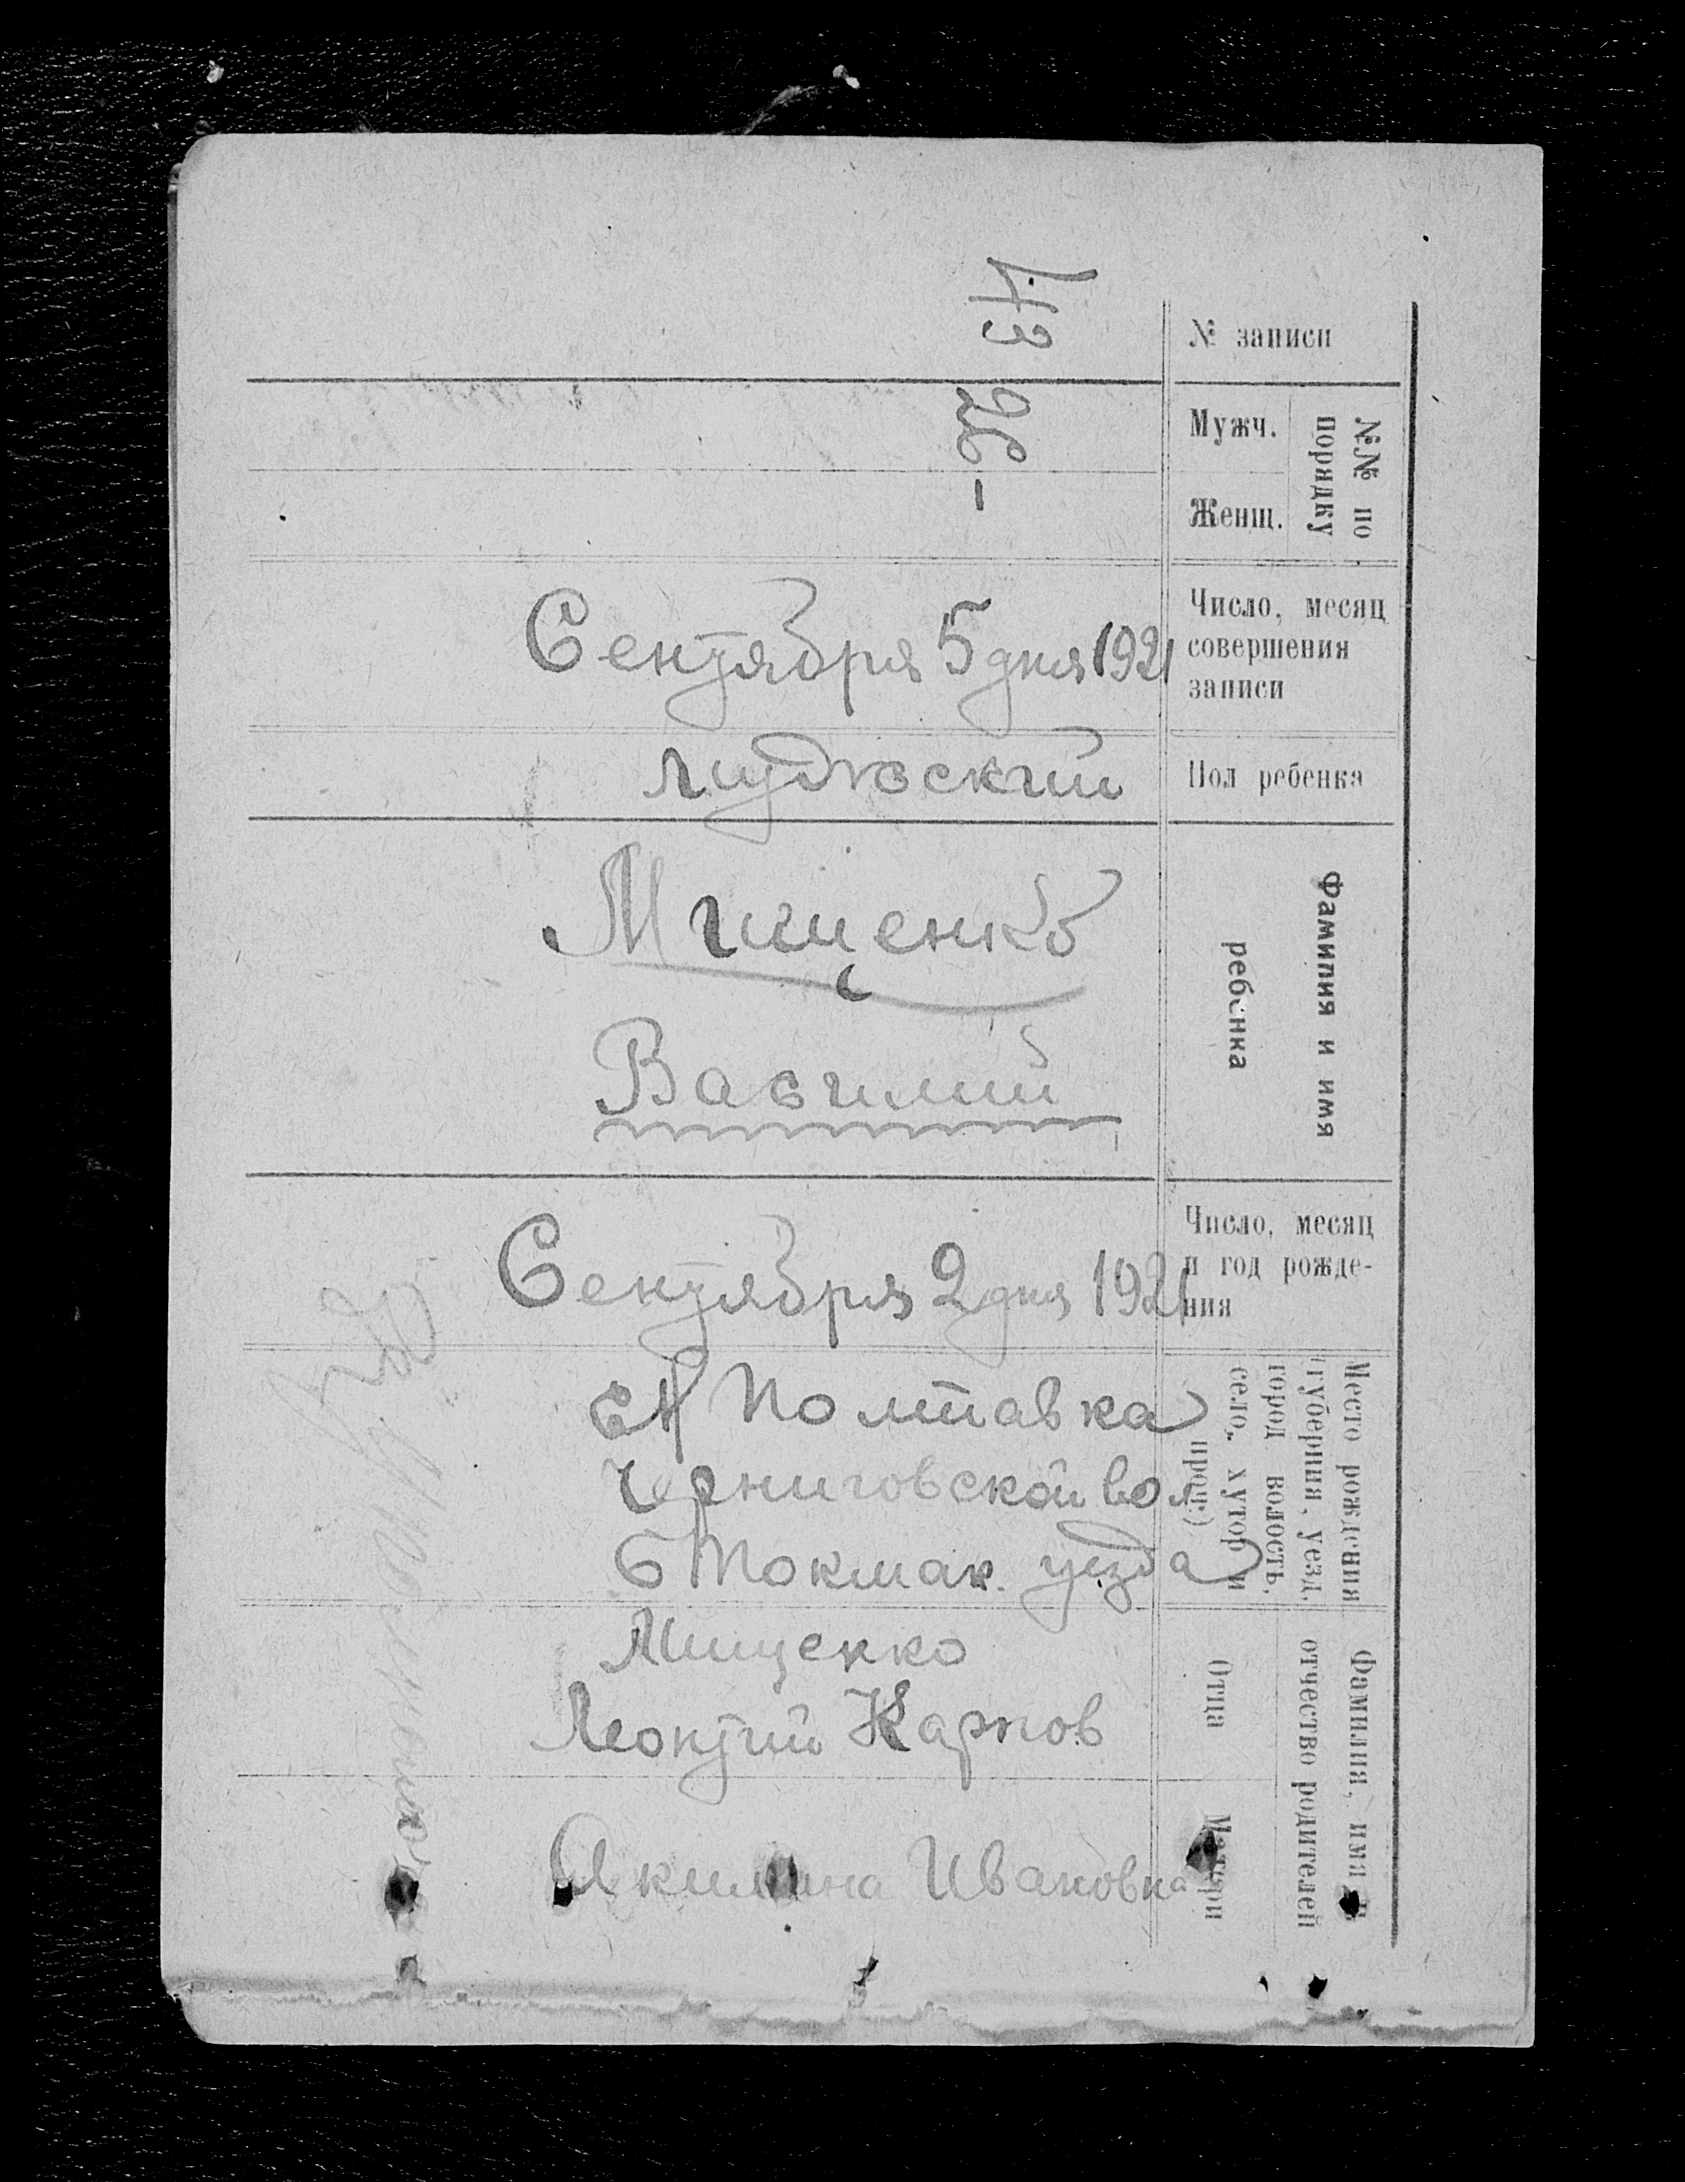 № записи
73
№№ по порядку
Мужч.
26
Женщ.
-
Число, месяц
совершения
записи
Сентября 5 дня 1921
Пол ребенка
мужоский
Фамилия и имя
ребенка
Мищенко
Василий
Число, месяц
и год рожде-
ния
Сентября 2 дня 1921
Место рождения
(губерния, уезд,
город волость,
село, хутор и
проч.)
Полтавка
Черниговской вол
Б Токмак. уезда
Фамилия, имя и
отчество родителей
Отца
Мищенко
Леонтий Карпов
Матери
Акилина Ивановна